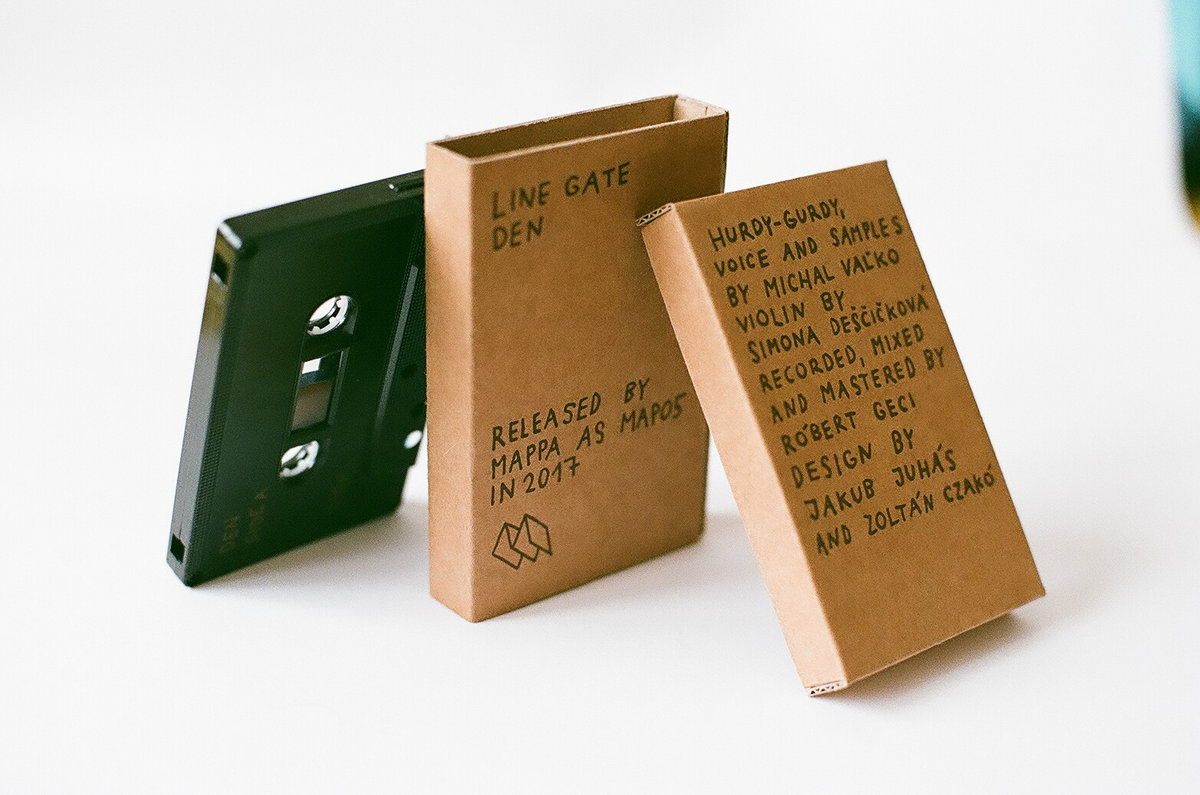 LINE GATE
DEN
RELEASED BY
MAPPA AS MAP05
IN 2017
HURDY-GURDY,
VOICE AND SAMPLES
BY MICHAL VAĽKO
VIOLIN BY
SIMONA DEŠČIČKOVÁ
RECORDED, MIXED
AND MASTERED BY
RÓBERT GECI
DESIGN BY
JAKUB JUHÁS
AND ZOLTÁN CZAKÓ
DEN